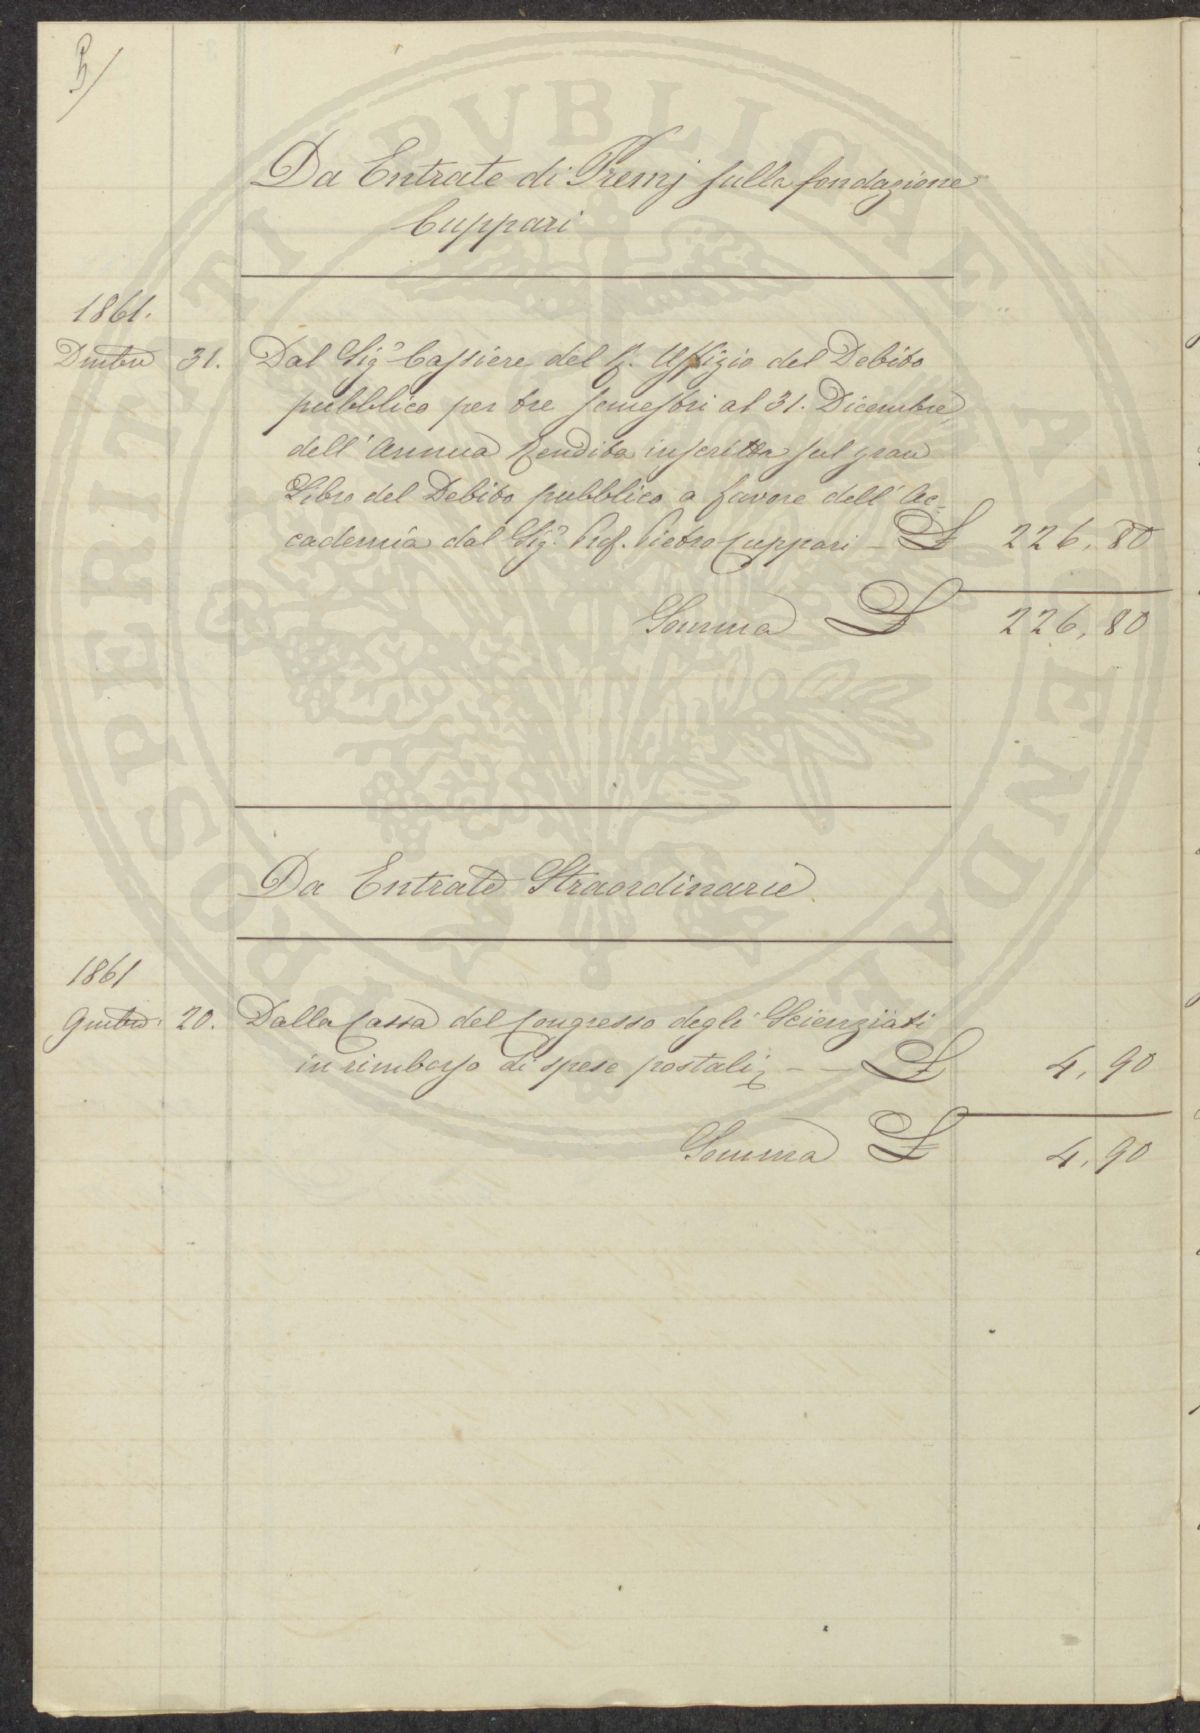 Da Entrate di Premj sulla fondazione
Cuppari
1861.
Dmbre 31. Dal Sigr Cassiere del R. Uffizio del Debito
pubblico per tre semestri al 31. Dicembre
dell'Annua Rendita inscritta sul gran
Libro del Debito pubblico a favore dell'Ac=
cademia dal Sigr. Prof. Pietro Cuppari — £ 226, 80
Somma £ 226, 80
Da Entrate Straordinarie.
1861
9mbre: 20. Dalla Cassa del Congresso degli Scienziati
in rimborso di spese postali; - — £ 4, 90
Somma £ 4, 90
PROSPERITATI PVBLICAE AVGENDAE